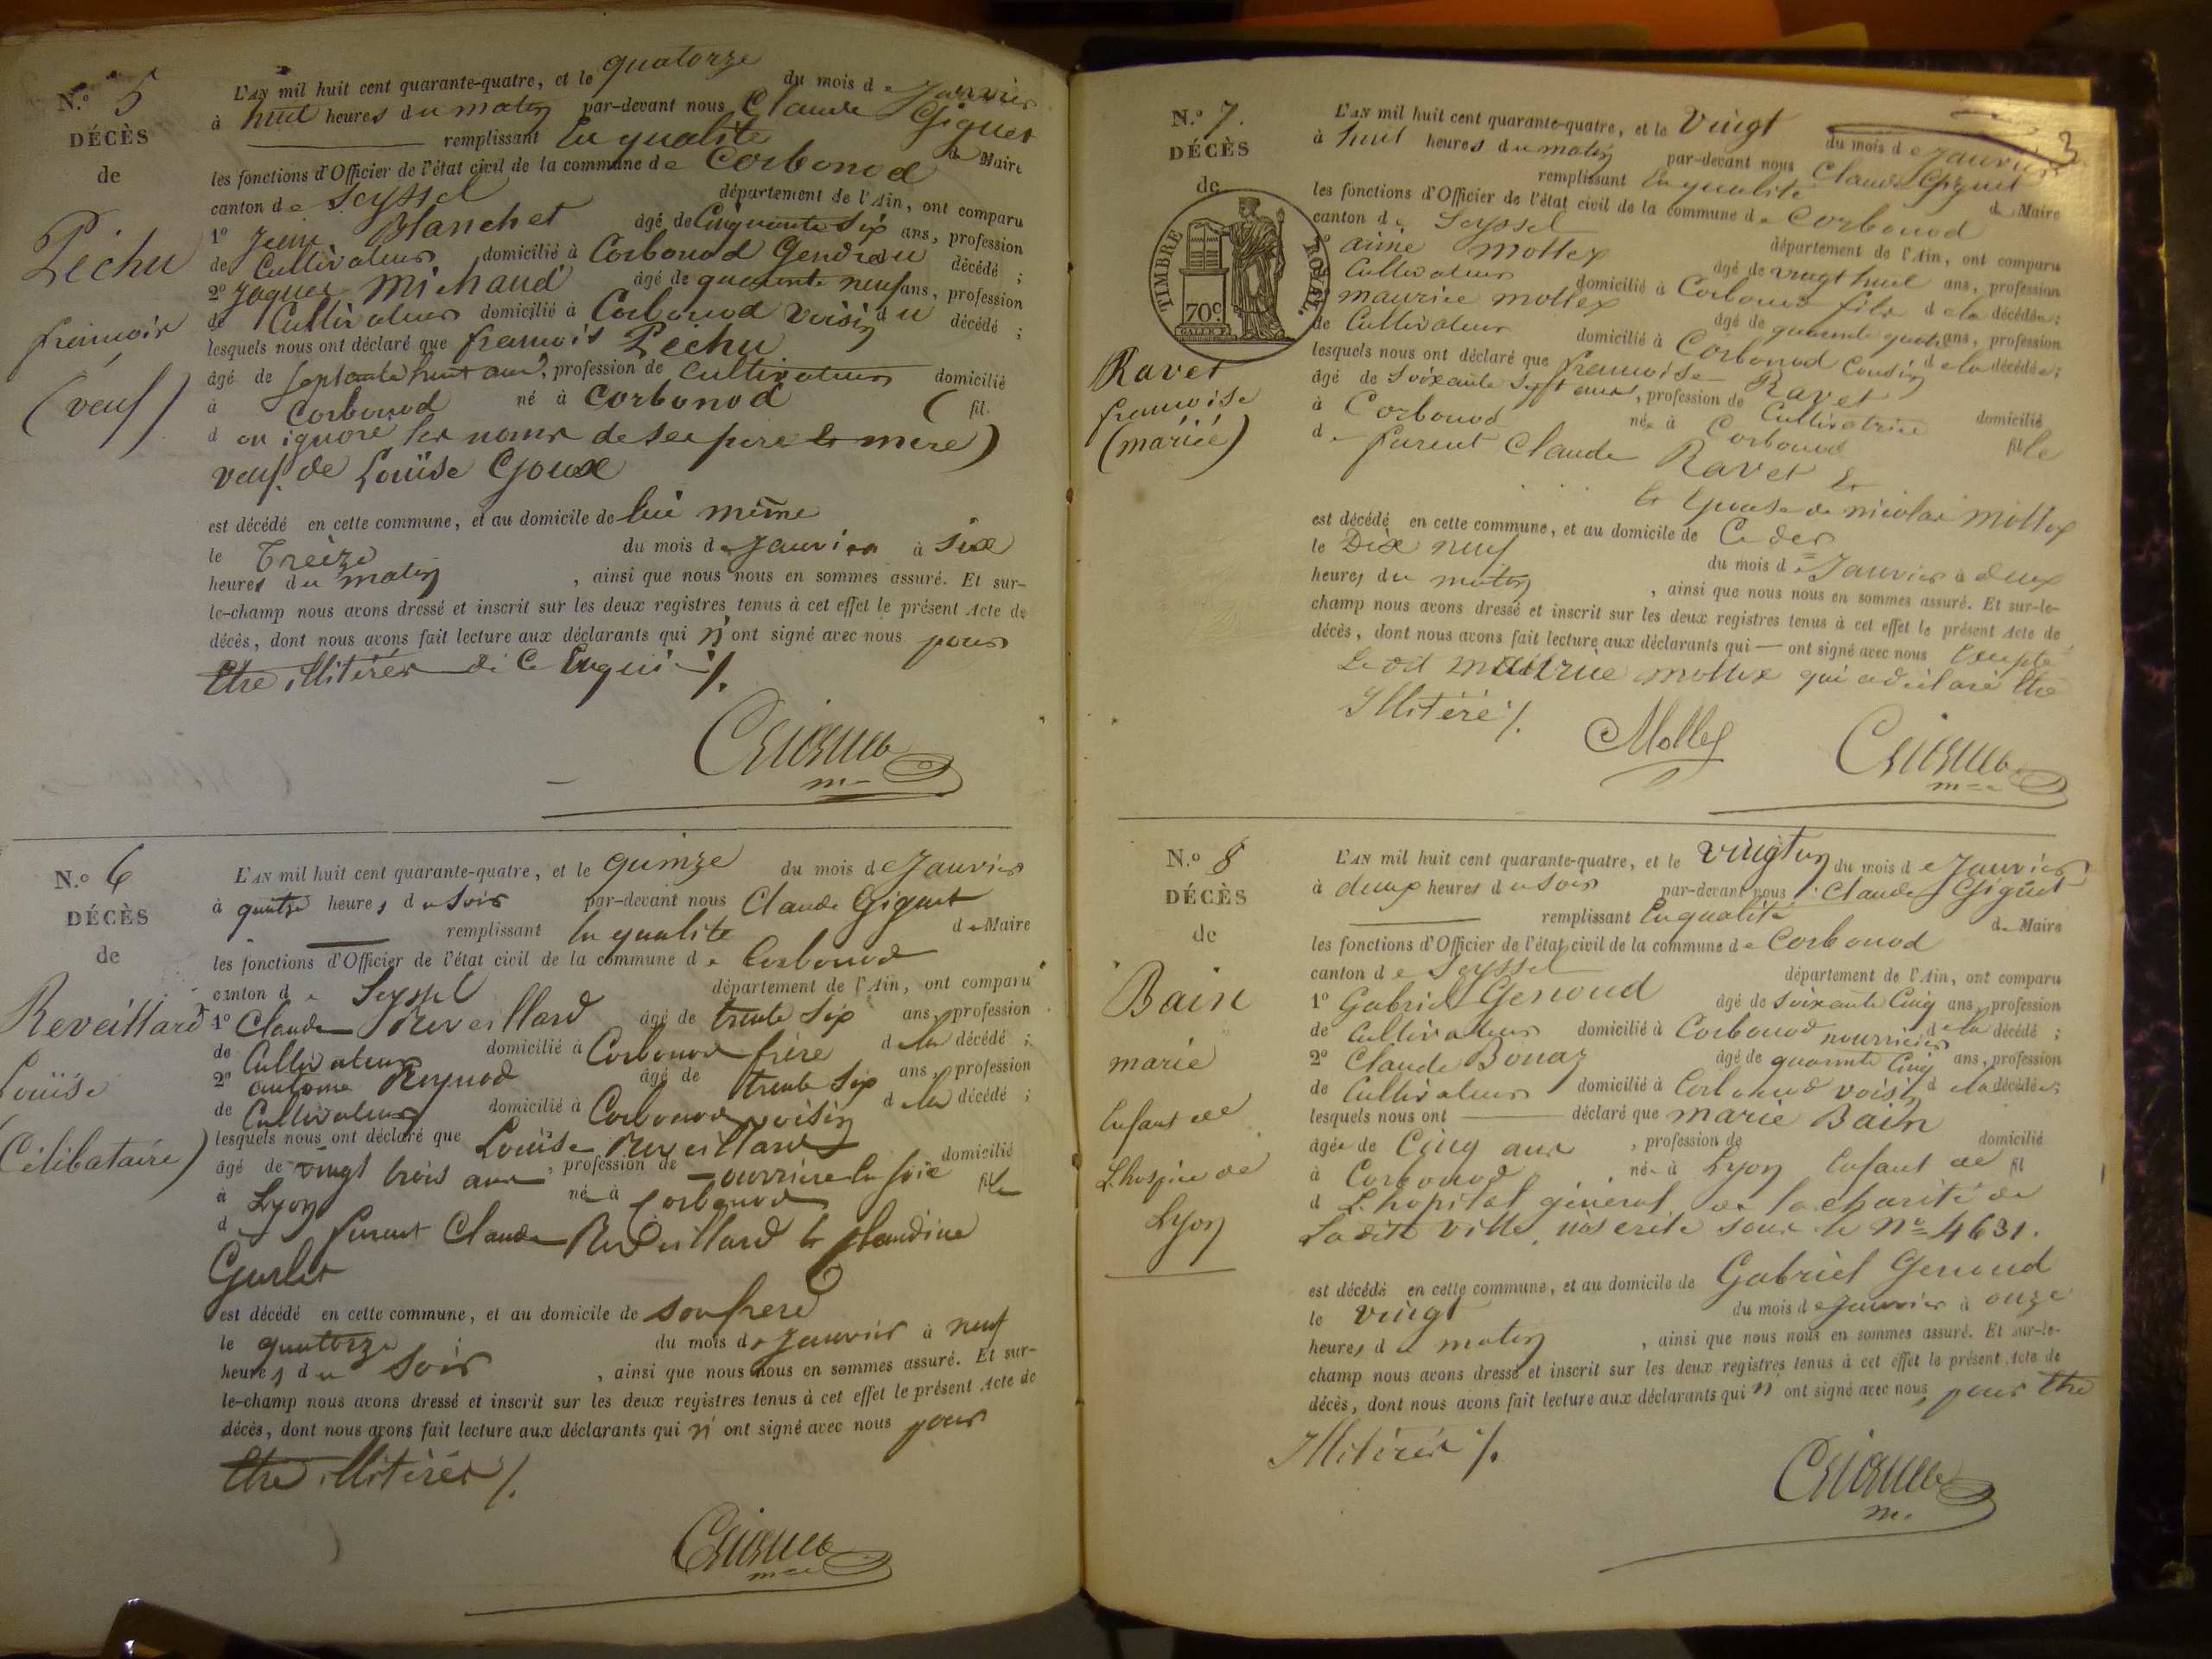 N.º 5
DÉCÈS
de
Pechu
francois
(veuf)
L'AN mil huit cent quarante-quatre, et le quatorze du mois de Janvier
à huit heures du matin par-devant nous Claude Giguet
remplissant En qualité de Maire
les fonctions d'Officier de l'état civil de la commune de Corbonod
canton de Seyssel département de l'Ain, ont comparu
1º Blanchet âgé de Cinquante Six ans, profession
de Cultivateur domicilié à Corbonod Gendre du décédé ;
2º Jaques Michaud âgé de quarante neuf ans, profession
de Cultivateur domicilié à Corbonod Voisin du décédé ;
lesquels nous ont déclaré que francois Pechu
âgé de septante huit ans, profession de Cultivateur domicilié
à Corbonod né à Corbonod ( fil.
d on ignore les noms de ses pere & mere)
veuf de Louïse Goux
est décédé en cette commune, et au domicile de lui même
le Treize du mois de Janvier à Six
heures du matin, ainsi que nous nous en sommes assuré. Et sur-
le-champ nous avons dressé et inscrit sur les deux registres tenus à cet effet le présent Acte de
décès, dont nous avons fait lecture aux déclarants qui n'ont signé avec nous pour
Etre illitérés de ce Enquis ./.
Giguet
m
N.º 6
DÉCÈS
de
Reveillard
Louïse
(Célibataire)
L'AN mil huit cent quarante-quatre, et le quinze du mois de Janvier
à quatre heures du Soir par-devant nous Claude Giguet
remplissant En qualité de Maire
les fonctions d'Officier de l'état civil de la commune de Corbonod
canton de Seyssel département de l'Ain, ont comparu
1º Claude Reveillard âgé de trente Six ans, profession
de Cultivateur domicilié à Corbonod frère de la décédé ;
2º antoine Reynod âgé de trente Six ans, profession
de Cultivateur domicilié à Corbonod voisin de la décédé ;
lesquels nous ont déclaré que Louïse Reveillard
âgé de vingt trois ans, profession de ouvriere en soie domicilié
à Lyon née à Corbonod fille
de furent Claude Reveillard & Claudine
Gurlet
est décédé en cette commune, et au domicile de son frere
le quatorze du mois de Janvier à neuf
heures du Soir, ainsi que nous nous en sommes assuré. Et sur-
le-champ nous avons dressé et inscrit sur les deux registres tenus à cet effet le présent Acte de
décès, dont nous avons fait lecture aux déclarants qui n'ont signé avec nous pour
Etre illitérés ./.
Giguet
N.º 7.
DÉCÈS
de
TIMBRE ROYAL.
70c
Ravet
francoise
(mariée)
3
L'AN mil huit cent quarante-quatre, et le Vingt du mois de Janvier
à huit heures du matin par-devant nous Claude Giguet
remplissant En qualité de Maire
les fonctions d'Officier de l'état civil de la commune de Corbonod
canton de Seyssel département de l'Ain, ont comparu
1º aimé Mottex âgé de vingt huit ans, profession
Cultivateur domicilié à Corbonod fils de la décédée ;
maurice mottex âgé de quarante quatre ans, profession
de Cultivateur domicilié à Corbonod Cousin de la décédée ;
lesquels nous ont déclaré que francoise Ravet
âgé de Soixante Sept ans, profession de Cultivatrice domicilié
à Corbonod née à Corbonod fille
de furent Claude Ravet &
& Epouse de nicolas Mottex
est décédé en cette commune, et au domicile de Ce der
le Dix neuf du mois de Janvier à deux
heures du matin, ainsi que nous nous en sommes assuré. Et sur-le-
champ nous avons dressé et inscrit sur les deux registres tenus à cet effet le présent Acte de
décès, dont nous avons fait lecture aux déclarants qui — ont signé avec nous Excepté
Le dit maurice mottex qui a déclaré Etre
Illitéré ./.
Mottex
Giguet
N.º 8
DÉCÈS
de
Bain
marie
Enfant de
L'hospice de
Lyon
L'AN mil huit cent quarante-quatre, et le vingt un du mois de Janvier
à deux heures du Soir par-devant nous Claude Giguet
remplissant En qualité de Maire
les fonctions d'Officier de l'état civil de la commune de Corbonod
canton de Seyssel département de l'Ain, ont comparu
1º Gabriel Genoud âgé de Soixante Cinq ans, profession
de Cultivateur domicilié à Corbonod nourricier de la décédé ;
2º Claude Bonaz âgé de quarante Cinq ans, profession
de Cultivateur domicilié à Corbonod voisin de la décédée ;
lesquels nous ont déclaré que marie Bain
âgée de Cinq ans, profession de domicilié
à Corbonod née à Lyon Enfant de fil
d L'hopital général de la charité de
La dite ville, inscrite sous le Nº 4631.
est décédé en cette commune, et au domicile de Gabriel Genoud
le vingt du mois de Janvier à onze
heures du matin, ainsi que nous nous en sommes assuré. Et sur-le-
champ nous avons dressé et inscrit sur les deux registres tenus à cet effet le présent Acte de
décès, dont nous avons fait lecture aux déclarants qui n'ont signé avec nous, pour Etre
Illitérés ./.
Giguet
m.